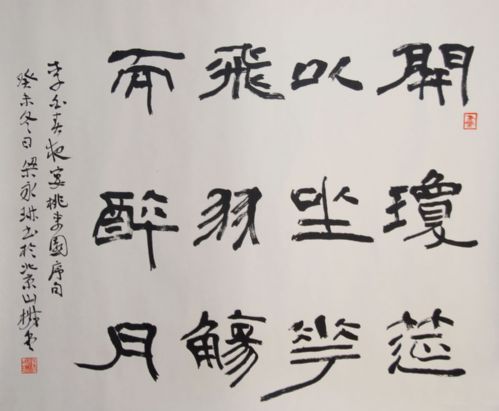 開瓊筵
以坐花
飛羽觴
而醉月
李白春夜宴桃李園序句
癸未冬日梁永琳書於北京山樵堂